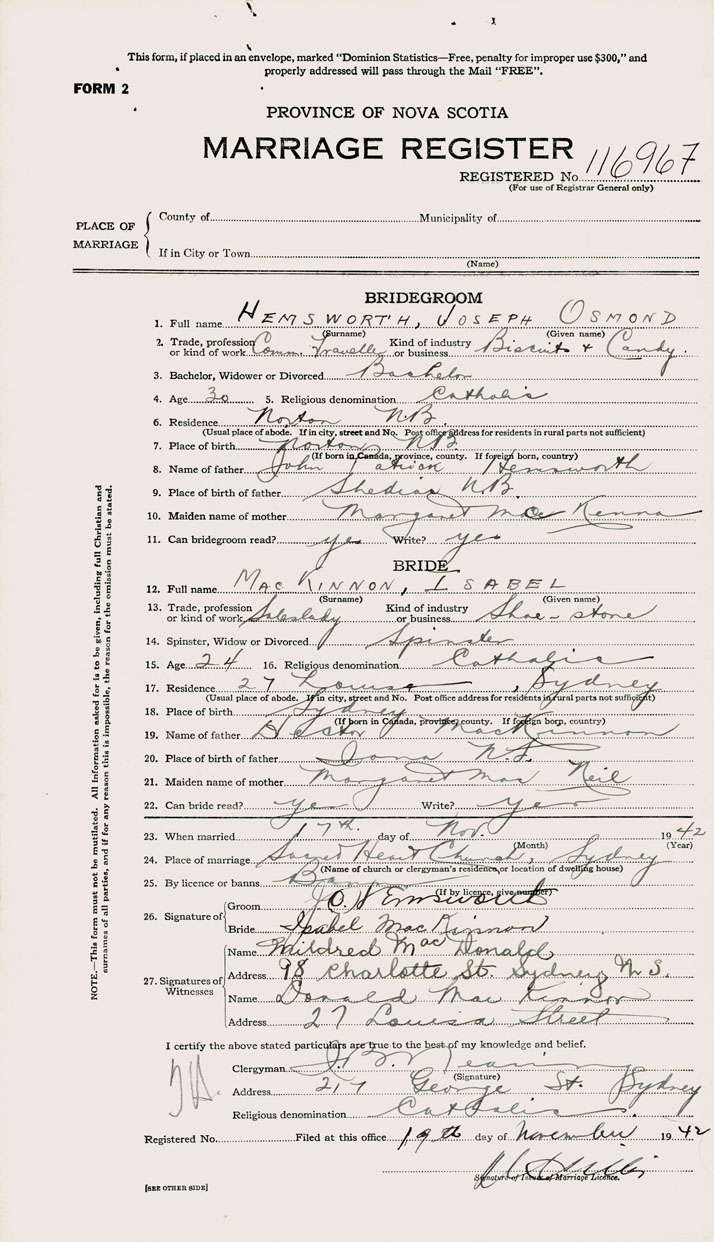 This form, if placed in an envelope, marked "Dominion Statistics—Free, penalty for improper use $300," and
properly addressed will pass through the Mail "FREE".
FORM 2
PROVINCE OF NOVA SCOTIA
MARRIAGE REGISTER
REGISTERED No. 116967
(For use of Registrar General only)
PLACE OF MARRIAGE
County of Municipality of
If in City or Town
(Name)
BRIDEGROOM
1. Full name HEMSWORTH, JOSEPH OSMOND
(Surname) (Given name)
2. Trade, profession or kind of work Comm. Traveller Kind of industry or business Biscuit & Candy.
3. Bachelor, Widower or Divorced Bachelor
4. Age 30 5. Religious denomination Catholic
6. Residence Norton N.B.
(Usual place of abode. If in city, street and No. Post office address for residents in rural parts not sufficient)
7. Place of birth Norton N.B.
(If born in Canada, province, county. If foreign born, country)
8. Name of father John Patrick Hemsworth
9. Place of birth of father Shediac N.B.
10. Maiden name of mother Margaret MacKenna
11. Can bridegroom read? yes Write? yes
BRIDE
12. Full name MACKINNON, ISABEL
(Surname) (Given name)
13. Trade, profession or kind of work Saleslady Kind of industry or business Shoe-store
14. Spinster, Widow or Divorced Spinster
15. Age 24 16. Religious denomination Catholic
17. Residence 27 Louisa, Sydney
(Usual place of abode. If in city, street and No. Post office address for residents in rural parts not sufficient)
18. Place of birth Sydney
(If born in Canada, province, county. If foreign born, country)
19. Name of father Hector MacKinnon
20. Place of birth of father Iona N.S.
21. Maiden name of mother Margaret MacNeil
22. Can bride read? yes Write? yes
23. When married 17th. day of Nov. 1942
(Month) (Year)
24. Place of marriage Sacred Heart Church, Sydney
(Name of church or clergyman's residence, or location of dwelling house)
25. By licence or banns
(If by licence, give number)
26. Signature of
Groom J O Hemsworth
Bride Isabel MacKinnon
27. Signatures of Witnesses
Name Mildred MacDonald
Address 98 Charlotte St. Sydney N.S.
Name Donald MacKinnon
Address 27 Louisa Street
I certify the above stated particulars are true to the best of my knowledge and belief.
Clergyman
(Signature)
Address 217 George St. Sydney
Religious denomination Catholic
Registered No. Filed at this office 19th day of November 1942
Signature of Issuer of Marriage Licence.
[SEE OTHER SIDE]
NOTE.—This form must not be mutilated. All information asked for is to be given, including full Christian and
surnames of all parties, and if for any reason this is impossible, the reason for the omission must be stated.